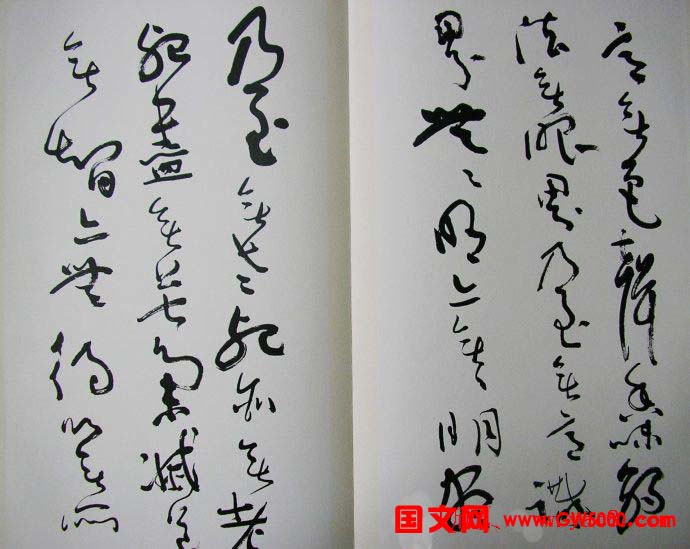 意無色聲香味觸
法無眼界乃至無意識
界無々明亦無明盡
乃至無老死亦無老
死盡無苦集滅道
無智亦無得以無所
国文网 www.GW5000.com